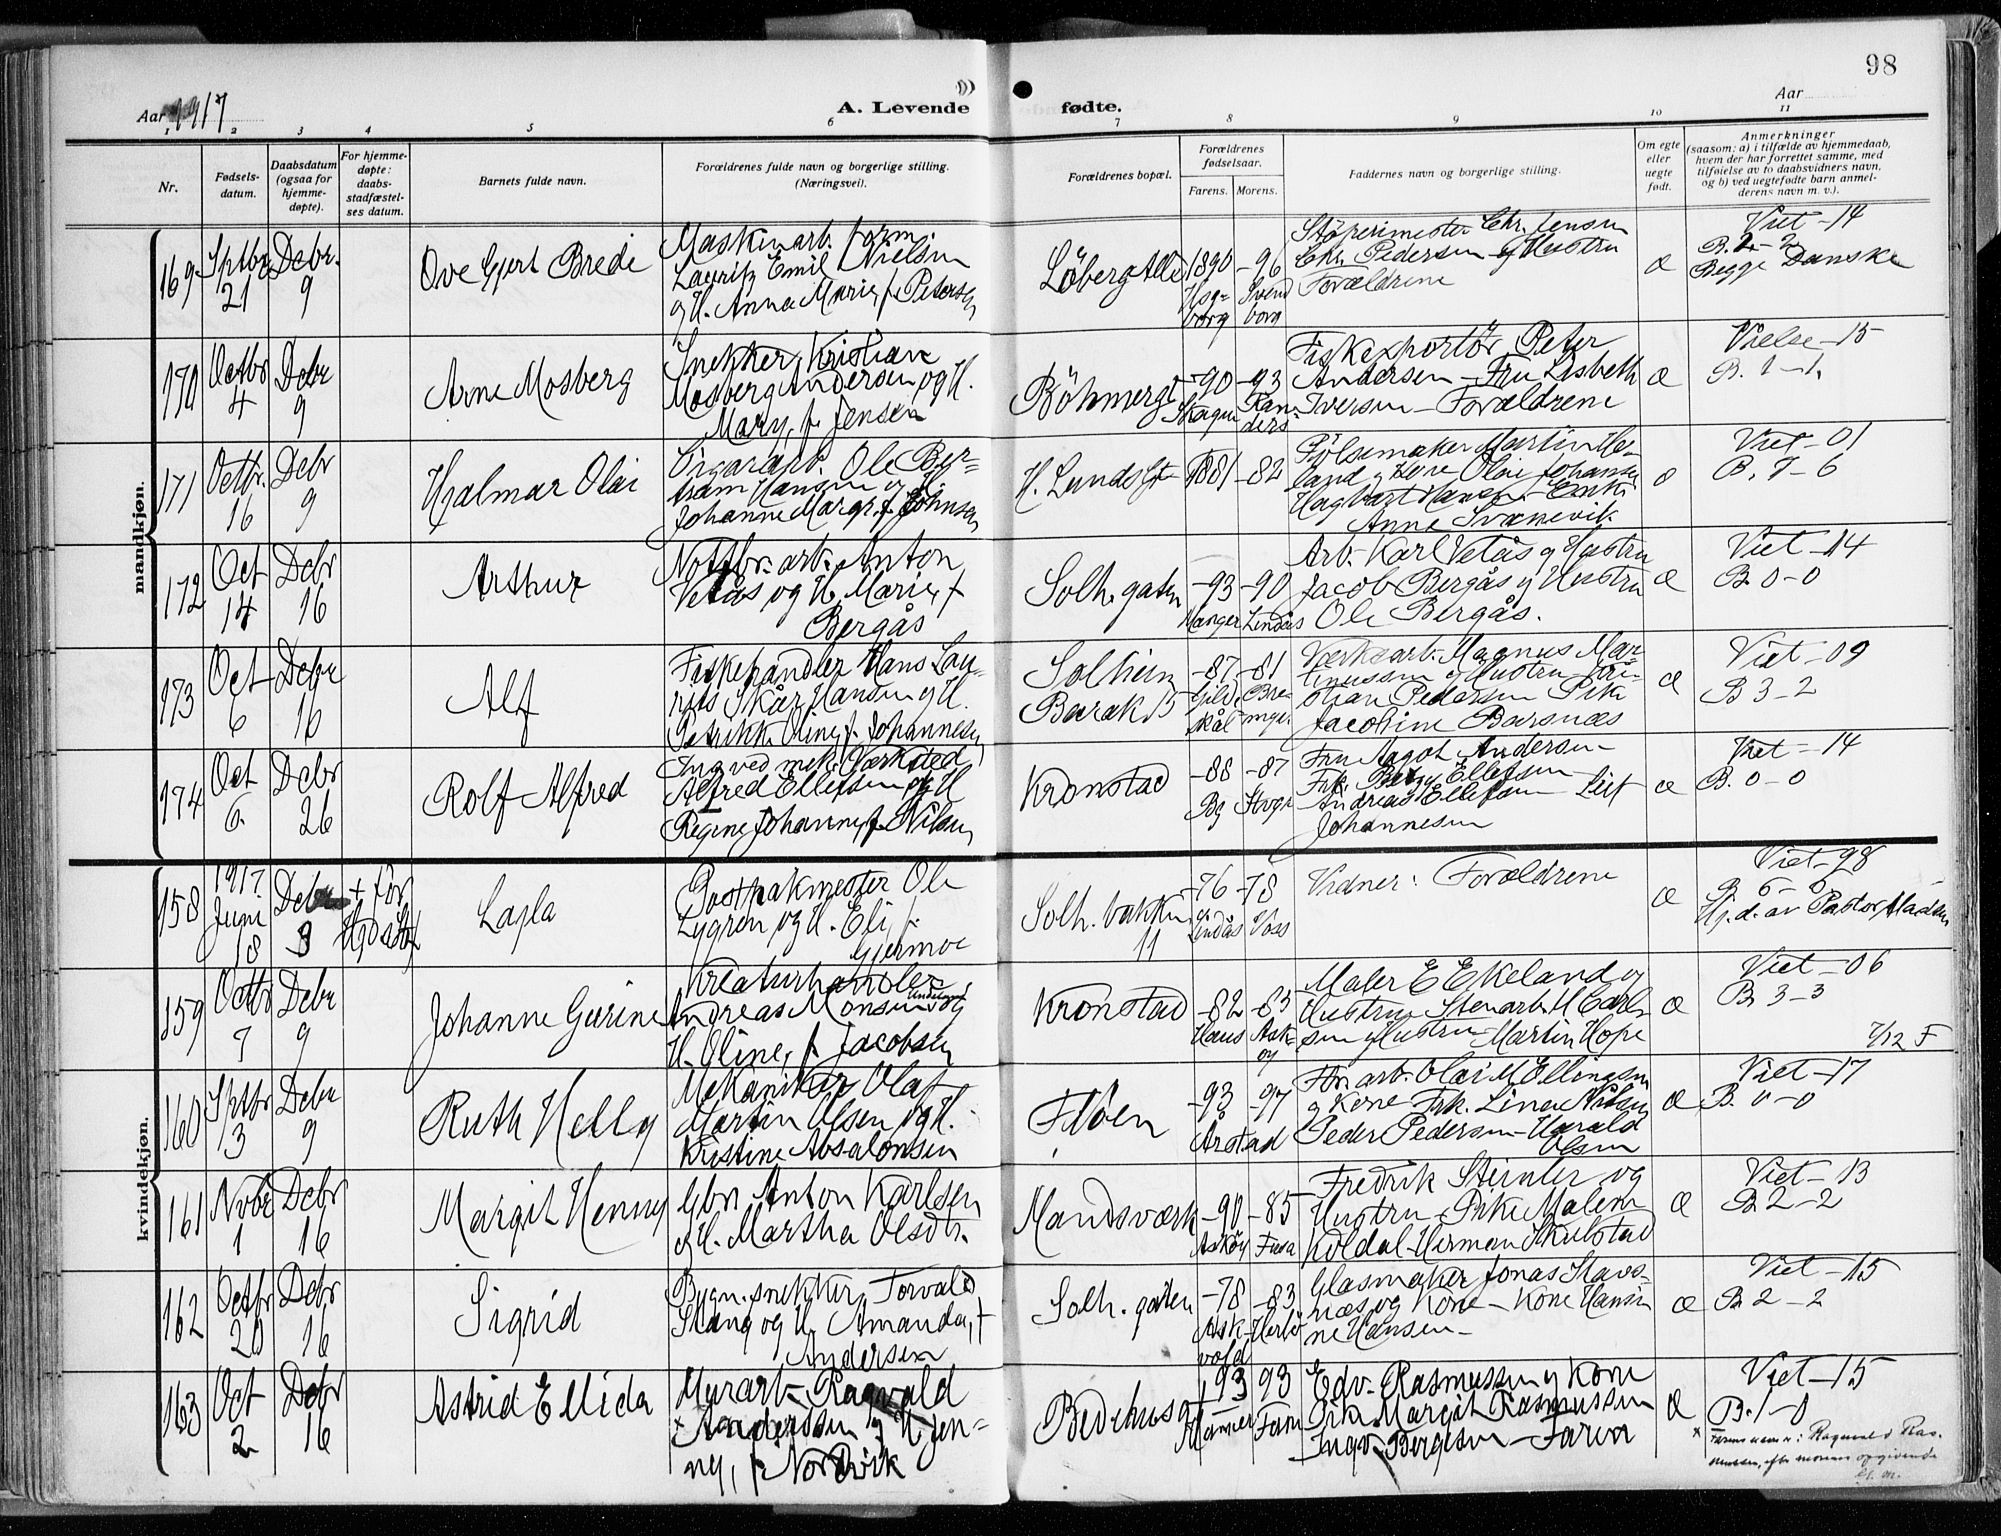 98
Aar 1917
A. Levende fødte.
Aar
1 2 3 4 5 6 7 8 9 10 11
Nr.
Fødsels-
datum.
Daabsdatum
(ogsaa for
hjemme-
døpte).
For hjemme-
døpte:
daabs-
stadfæstel-
ses datum.
Barnets fulde navn.
Forældrenes fulde navn og borgerlige stilling.
(Næringsvei).
Forældrenes bopæl.
Forældrenes
fødselsaar.
Farens. Morens.
Faddernes navn og borgerlige stilling.
Om egte
eller
uegte
født.
Anmerkninger
(saasom: a) i tilfælde av hjemmedaab,
hvem der har forrettet samme, med
tilføielse av to daabsvidners navn,
og b) ved uegtefødte barn anmel-
derens navn m. v.).
mandkjøn.
169
Sptbr
21
Debr.
9
Ove Gjert Brede
Maskinarb. form.
Lauritz Emil Nielsen
og H. Anna Marie, f. Petersen
Løberg Allé
1890 -96
Svend
borg
Støperimester Chr. Jensen
Chr. Pedersen og Hustru
Forældrene
æ
Viet -14
B. 2-2
Begge Danske
170
Octbr
4
Debr
9
Arne Mosberg
Snekker Kristian
Mosberg Andersen og H.
Mary, f. Jensen
Böhmergt
-90 -93
Skagen Ran-
ders
Fiskexportør Peter
Andersen - Fru Lisbeth
Iversen - Forældrene
æ
Vielse -15
B. 1-1.
171
Octbr.
16
Debr
9
Hjalmar Olai
Cigararb. Ole Ber-
tram Hansen og H.
Johanne Margr. f. Johnsen
H. Lunds Gt
1881 -82
Pølsemaker Martin He-
land og Kone Olai Johansen
Hagbart Hansen - Enke
Anne Svanevik
Viet -01
B. 7-6
172
Oct
14
Debr
16
Arthur
arb. Anton
Vetås og H. Marie, f.
Bergås
Solh. gaten
-93 -90
Manger Lindås
Arb. Karl Vetås og Hustru
Jacob Bergås og Hustru
Ole Bergås.
æ
Viet -14
B. 0-0
173
Oct
6
Debr
16
Alf
Fiskehandler Hans Lau-
rits Skår Hansen og H.
Petrikke Oline, f. Johannesen
Solheim
Barak 15
-87 -81
Gilde
skål Bre-
manger
Verksarb. Magnus Mar-
tinussen og Hustru Kri-
stian Pedersen Pike
Jacobine Barsnæs
æ
Viet -09
B 3-2
174
Oct
6.
Debr
26
Rolf Alfred
Ing ved mek. Værksted
Alfred Ellefsen og H
Regine Johanne, f. Nilsen
Kronstad
-88 -87
Bg
Fru Aagot Andersen -
Frk. Ellefsen
Andreas Ellefsen
Johannesen
æ
Viet -14
B. 0-0
kvindekjøn.
158
1917
Juni
18
Debr
9
Layla
Postpakmester Ole
Lygren og H. Eli, f.
Gjermoe
Solh. bakken
11
-76 -78
Lindås Voss
Vidner: Forældrene
æ
Viet -98
Hj. d. av Pastor Madsen
159
Octbr
7
Debr
9
Johanne Gurine
Kreaturhandler
Andreas Monsen og
H. Oline, f. Jacobsen
Kronstad
-82 -83
Haus Ask-
øy
Maler E Ekeland og
Hustru Stenarb. H Carl-
sen og Hustru Martin Hope
æ
Viet -06
B 3-3
7/12 F
160
Sptbr
13
Debr
9
Ruth Helly
Mekaniker Olaf
Martin Olsen og H.
Kristine Absalonsen
Fløen
-93 -97
Årstad
arb. Olai M Ellingsen
og Kone Frk. Lina Nilsen
Peder Pedersen - Harald
Olsen
æ
Viet -17
B. 0-0
161
Novbr
1
Debr
16
Margit Henny
Anton Karlsen
og H. Martha Olsdtr.
Mandsværk
-90 -85
Askøy Fusa
Fredrik Steinler og
Hustru - Pike Malene
Koldal - Herman Skulstad
æ
Viet -13
B 2-2
162
Octbr
20
Debr
16
Sigrid
Bygn.snekker Torvald
Stang og H. Amanda, f.
Andersen
Solh. gaten
-78 -83
Ask-
vold Herlø
Glasmaker Jonas Stavs-
næs og Kone - Kone Hansi-
ne Hansen -
æ
Viet -15
B 2-2
163
Oct
2
Debr
16
Astrid Ellida
Murarb. Ragvald
x Anderssen og H. Jen-
ny, f. Nordvik
Bedehusgt
93 93
Edv. Rasmussen og Kone
Pike Margit Rasmussen
Ingv. Bergesen - Faren
æ
Viet -15
B. 1-0
x Farens navn er: Ragnvald Ras-
mussen, efter morens opgivende